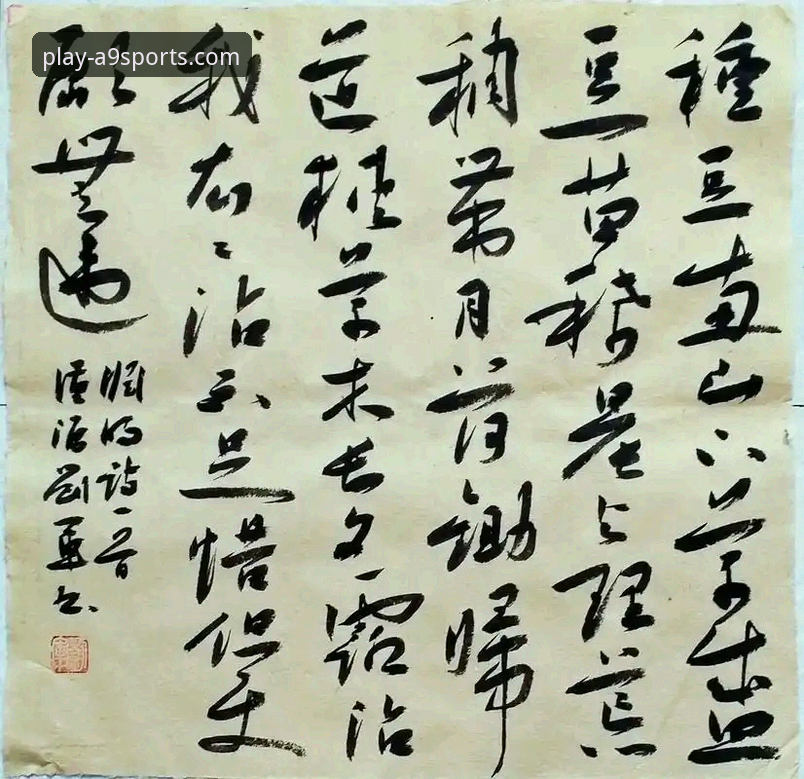 play-a9sports.com
種豆南山下草盛
豆苗稀晨興理荒
穢帶月荷鋤歸
道狹草木長夕露沾
我衣々沾不足惜但使
願無違
明詩一首
劉書